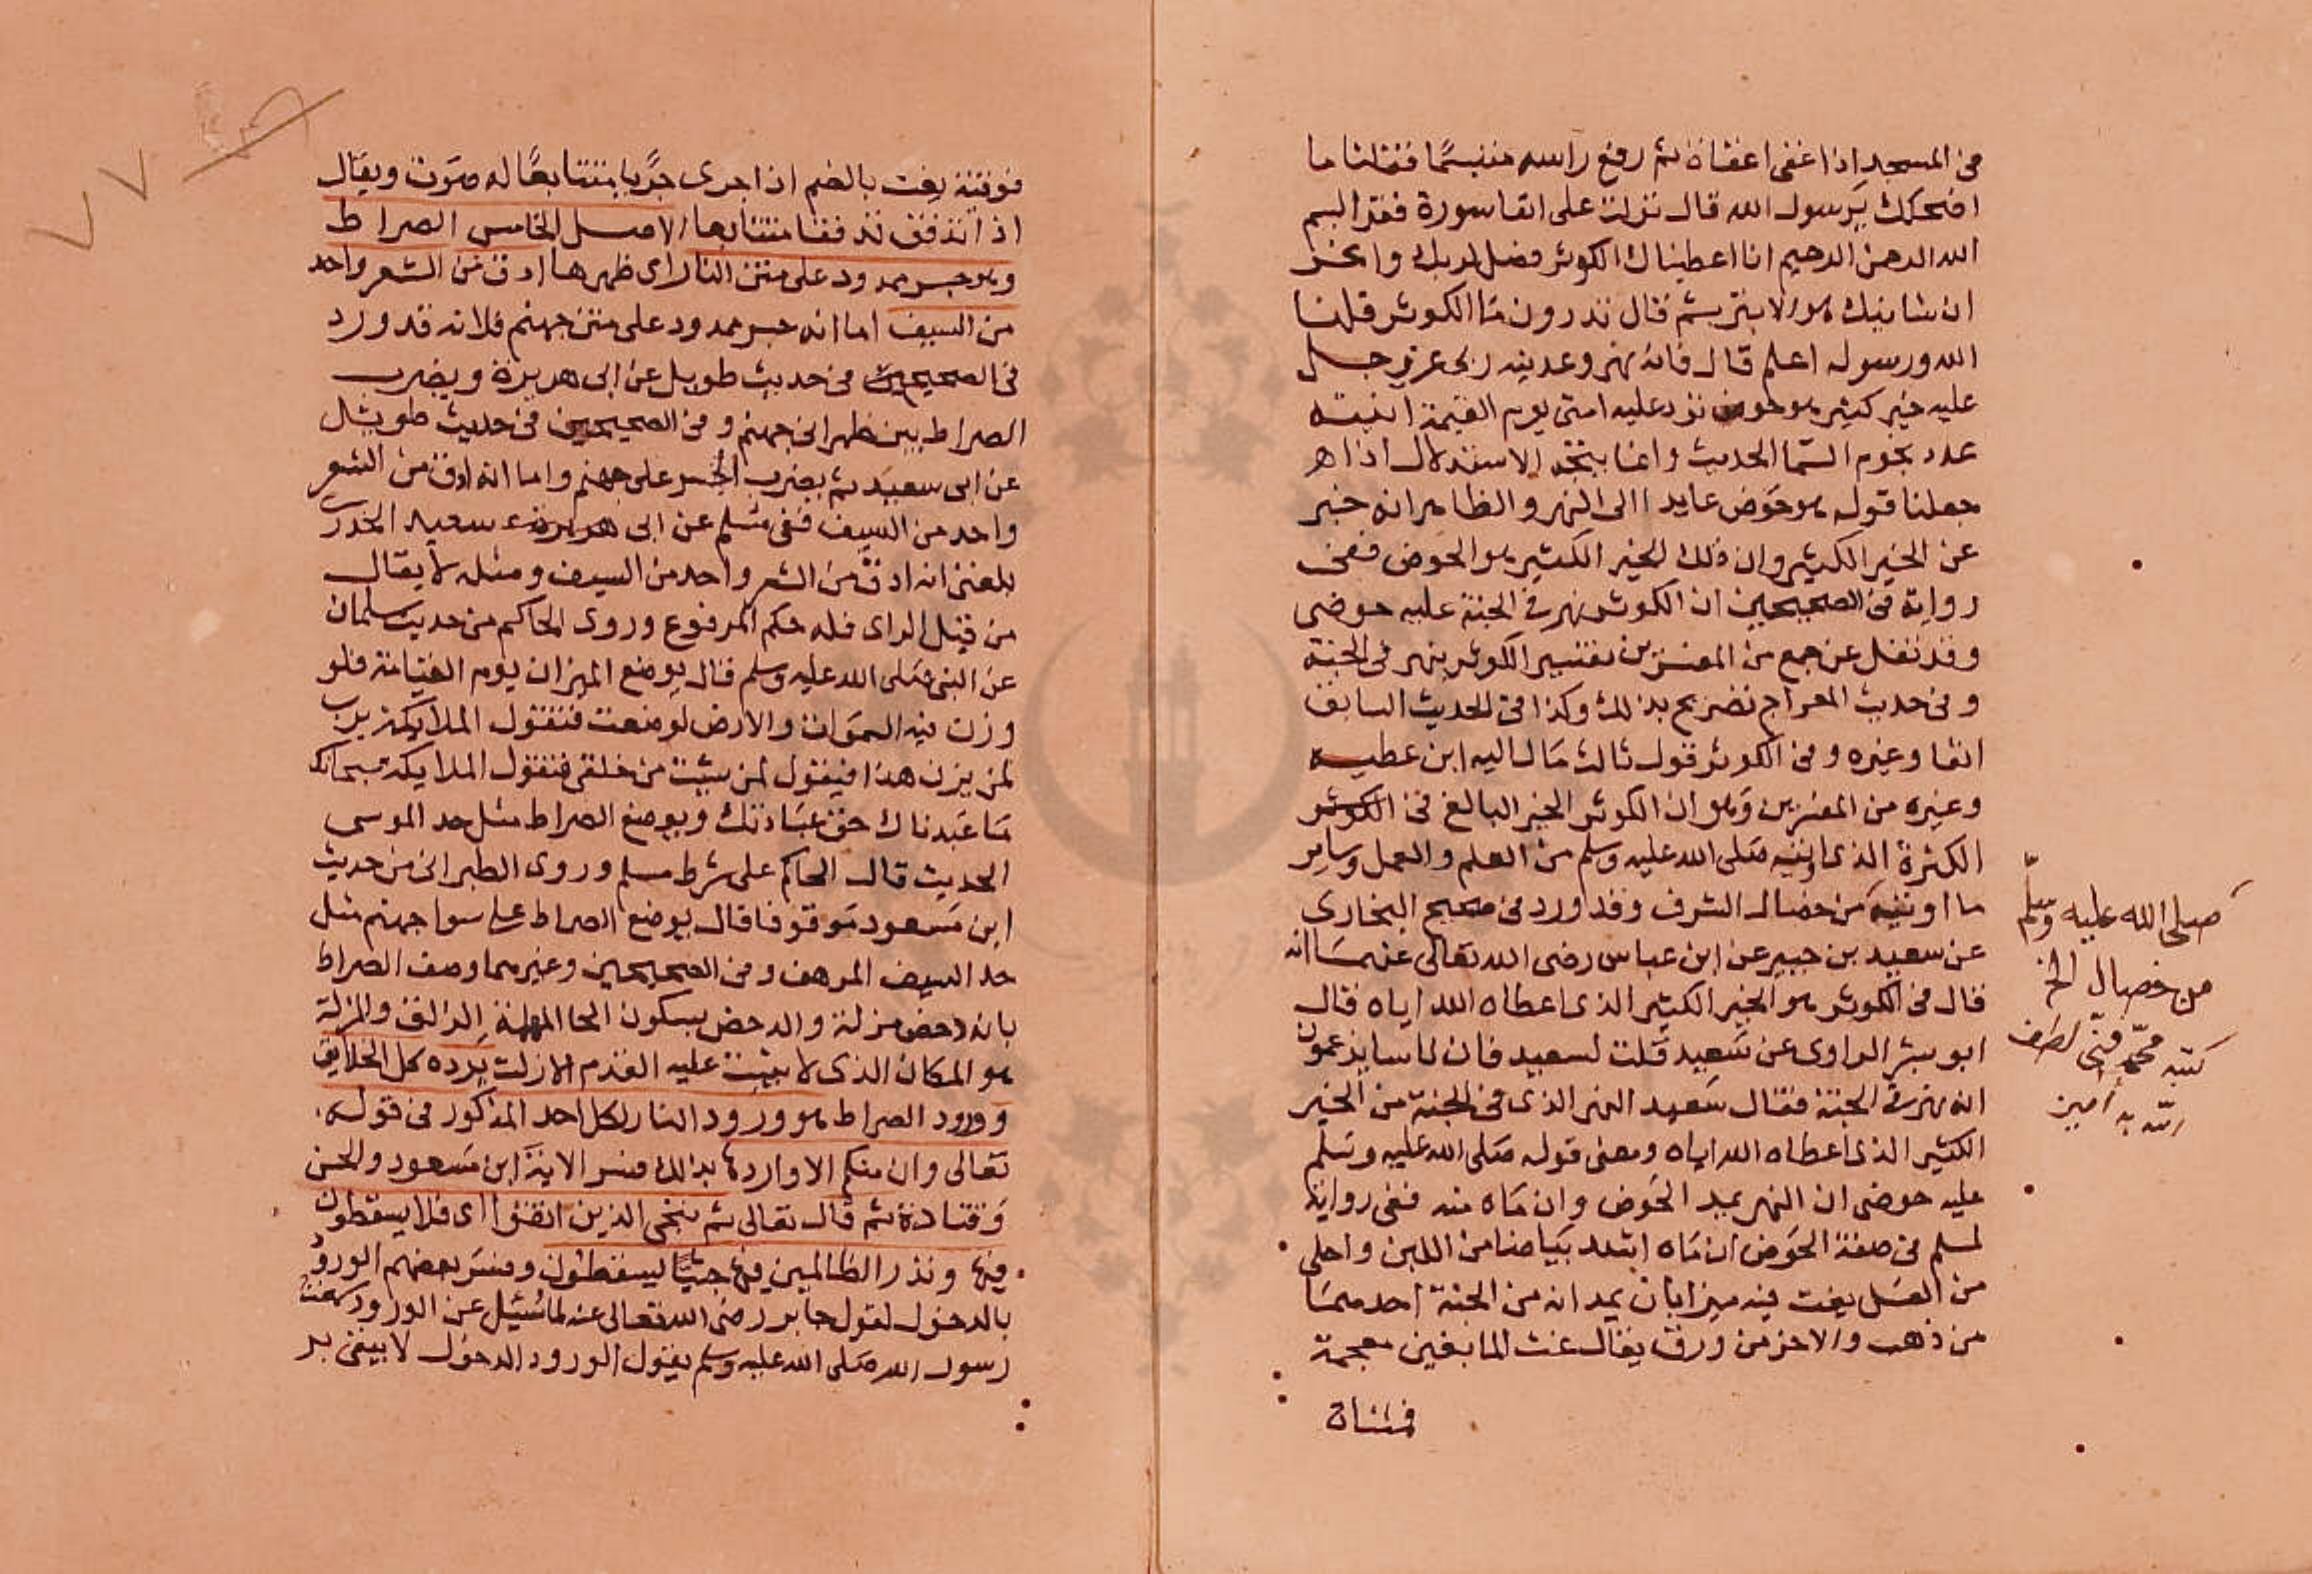 في المسجد اذا غفى اغفاة ثم رفع راسه متبسما فقلنا ما
اضحكك يرسول الله قال نزلت على انفا سورة فقرا بسم
الله الرحمن الرحيم انا اعطيناك الكوثر فصل لربك وانحر
ان شانيك هو الابتر ثم قال تدرون ما الكوثر قلنا
الله ورسوله اعلم قال فانه نهر وعدنيه ربى عز وجل
عليه خير كثير هو حوض ترد عليه امتى يوم القيمة انيته
عدد نجوم السما الحديث وانما يتجه الاستدلال اذا
جعلنا قوله هو حوض عايدا الى النهر والظاهر انه خبر
عن الخير الكثير وان ذلك الخير الكثير هو الحوض ففى
رواية في الصحيحين ان الكوثر نهر في الجنة عليه حوضى
وقد نقل عن جمع من المفسرين تفسير الكوثر بنهر في الجنة
وفي حديث المعراج تصريح بذلك وكذا في الحديث السابق
انفا وغيره وفي الكوثر قول ثالث مال اليه ابن عطيه
وغيره من المفسرين وهو ان الكوثر الخير البالغ في الكوثر
الكثرة الذى اوتيه صلى الله عليه وسلم من العلم والعمل وساير
ما اوتيه من خصال الشرف وقد ورد في صحيح البخارى
عن سعيد بن جبير عن ابن عباس رضى الله تعالى عنهما انه
قال في الكوثر هو الخير الكثير الذى اعطاه الله اياه قال
ابو بشر الراوى عن سعيد قلت لسعيد فان ناسا يزعمون
انه نهر في الجنة فقال سعيد النهر الذى في الجنة من الخير
الكثير الذى اعطاه الله اياه ومعنى قوله صلى الله عليه وسلم
عليه حوضى ان النهر يمد الحوض وان ماه منه ففى رواية
لمسلم في صفة الحوض ان ماه اشد بياضا من اللبن واحلى
من العسل يغت فيه ميزابان يمدانه من الجنة احدهما
من ذهب والاخر من ورق يقال غت الما بغين معجمة
فمثناة
صلى الله عليه وسلم
من خصال الخ
كتبه محمد فنى لطف
الله به امين
٧٧
فوقية يغت بالضم اذا جرى جريا متتابعا له صوت ويقال
اذا تدفق تدفقا متتابعا الاصل الخامس الصراط
وهو جسر ممدود على متن النار اى ظهرها ادق من الشعر واحد
من السيف اما انه جسر ممدود على متن جهنم فلانه قد ورد
في الصحيحين في حديث طويل عن ابى هريرة ويضرب
الصراط بين ظهرانى جهنم وفي الصحيحين في حديث طويل
عن ابى سعيد ثم يضرب الجسر على جهنم واما انه ادق من الشعر
واحد من السيف ففى مسلم عن ابى هريرة سعيد الخدرى
بلغنى انه ادق من الشعر واحد من السيف ومثله لا يقال
من قبل الراى فله حكم المرفوع وروى الحاكم من حديث سلمان
عن النبى صلى الله عليه وسلم قال يوضع الميزان يوم القيامة فلو
وزن فيه السموات والارض لوضعت فتقول الملايكة يرب
لمن يزن هذا فيقول لمن شيت من خلقى فتقول الملايكة سبحانك
ما عبدناك حق عبادتك ويوضع الصراط مثل حد الموسى
الحديث قال الحاكم على شرط مسلم وروى الطبرانى من حديث
ابن مسعود موقوفا قال يوضع الصراط على سوا جهنم مثل
حد السيف المرهف وفي الصحيحين وغيرهما وصف الصراط
بانه دحض مزلة والدحض بسكون الحا المهملة الزلق والمزلة
هو المكان الذى لا يثبت عليه القدم الا زلت يرده كل الخلايق
وورود الصراط هو ورود النار لكل احد المذكور في قوله
تعالى وان منكم الا واردها بذلك فسر الاية ابن مسعود والحسن
وقتادة ثم قال تعالى ثم ننجى الذين اتقوا اى فلا يسقطون
فيها ونذر الظالمين فيها جثيا يسقطون وفسر بعضهم الورود
بالدخول لقول جابر رضى الله تعالى عنه لما سئل عن الورود سمعت
رسول الله صلى الله عليه وسلم يقول الورود الدخول لا يبقى بر